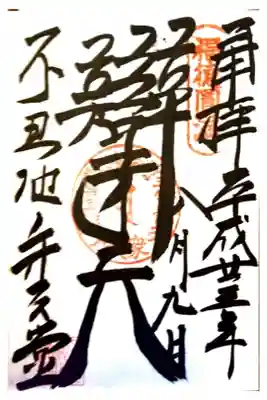 奉拝 平成廿三年
月九日
辯才天
不忍池ノ弁天堂